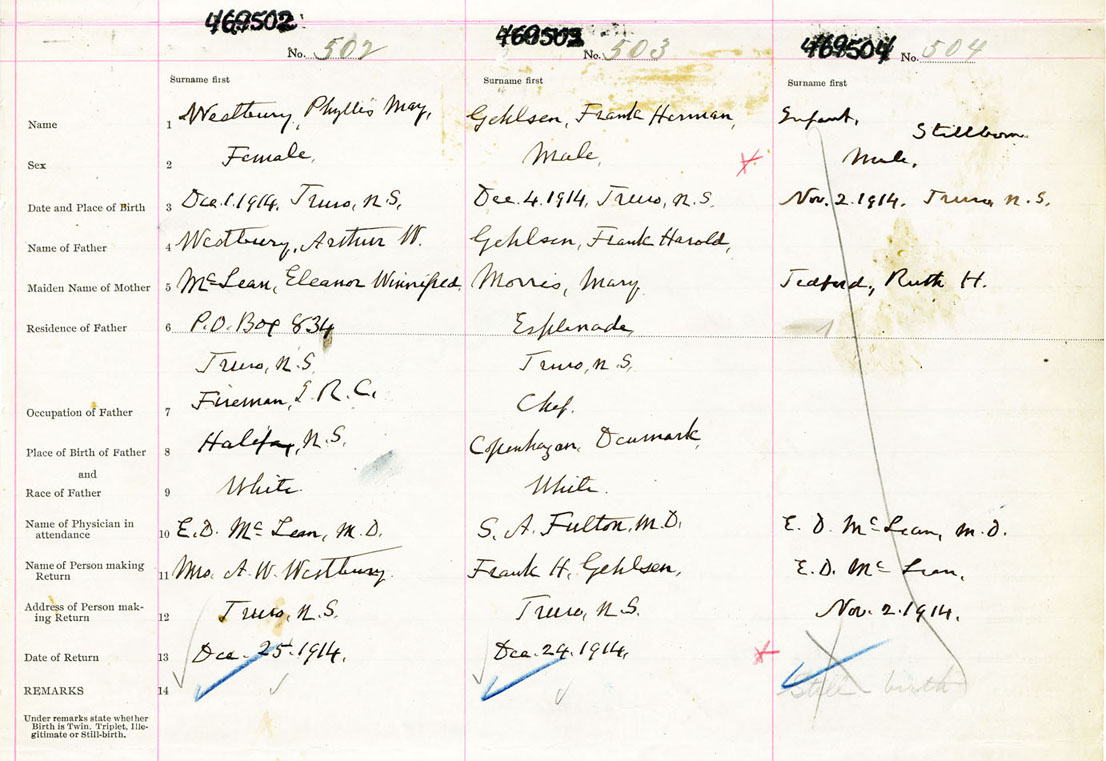 469502 469503 469504
No. 502 No. 503 No. 504
Surname first Surname first Surname first
Name 1 Westbury, Phyllis May, Gehlsen, Frank Herman, Infant, Stillborn
Sex 2 Female, Male, Male,
Date and Place of Birth 3 Dec. 1. 1914, Truro, N.S. Dec. 4. 1914, Truro, N.S. Nov. 2. 1914. Truro N.S.
Name of Father 4 Westbury, Arthur W. Gehlsen, Frank Harold,
Maiden Name of Mother 5 McLean, Eleanor Winnifred. Morris, Mary Tedford, Ruth H.
Residence of Father 6 P.O. Box 834 Esplanade,
Truro, N.S. Truro, N.S.
Occupation of Father 7 Fireman, I.R.C. Chef.
Place of Birth of Father 8 Halifax, N.S. Copenhagen, Denmark,
and
Race of Father 9 White. White.
Name of Physician in
attendance 10 E.D. McLean, M.D. S. A. Fulton, M.D. E. D. McLean, M.D.
Name of Person making
Return 11 Mrs. A. W. Westbury. Frank H. Gehlsen, E.D. McLean,
Address of Person mak-
ing Return 12 Truro, N.S. Truro, N.S. Nov. 2. 1914.
Date of Return 13 Dec. 25. 1914. Dec. 24. 1914,
REMARKS 14 Still-birth
Under remarks state whether
Birth is Twin, Triplet, Ille-
gitimate or Still-birth.